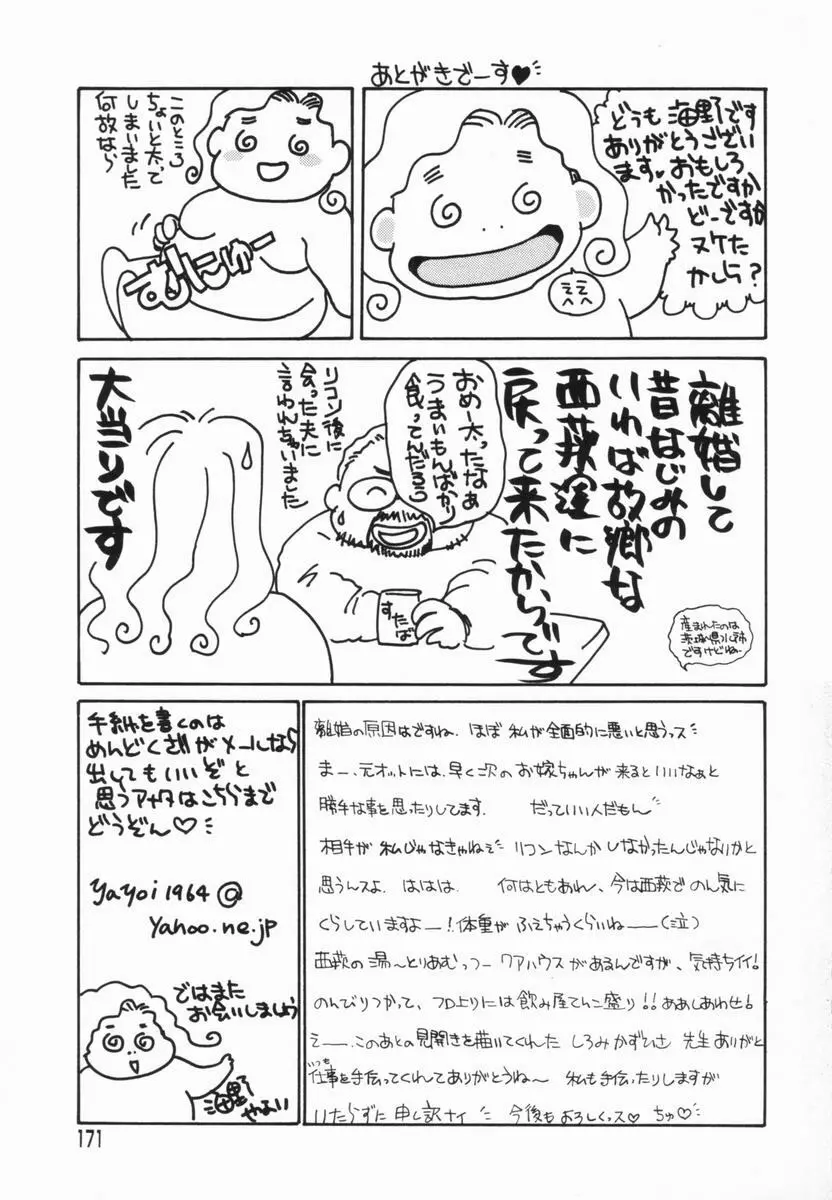 あとがきでーす♥
どうも海野です
ありがとうござい
ます♥おもしろ
かったですか
どーですか
ヌケた
かしら?
このところ
ちょいと太って
しまいました
何故なら
むにゅー
離婚して
昔なじみの
いわば故郷な
西荻窪に
戻って来たからです
産まれたのは
茨城県水戸市
ですけどね。
おめー太ったなぁ
うまいもんばかり
食ってんだろう
すたば
リコン後に
会った夫に
言われちゃいました
大当りです
離婚の原因はですね、ほぼ私が全面的に悪いと思うっス
まー、元オットには、早く次のお嫁ちゃんが来るといいなぁと
勝手な事を思ったりしてます。だっていい人だもん
相手が私じゃなきゃねぇリコンなんかしなかったんじゃないかと
思うんスよ、ははは。何はともあれ、今は西荻でのん気に
くらしていますよー!体重がふえちゃうくらいねー(泣)
西荻の湯〜とりあむっつークアハウスがあるんですが、気持ちイイ!
のんびりつかって、フロ上りには飲み屋てんこ盛り!!ああしあわせ!
えー、このあとの見開きを描いてくれたしろみかずひさ先生ありがと
いつも
仕事を手伝ってくれてありがとうね〜私も手伝ったりしますが
いたらずに申し訳ナイ 今後もよろしくっス♡ちゅ♡
手紙を書くのは
めんどくさいがメールなら
出してもいいぞと
思うアナタはこちらまで
どうぞん♡
yayoi1964@
yahoo.ne.jp
ではまた
お会いしましょう
海野
やよい
171